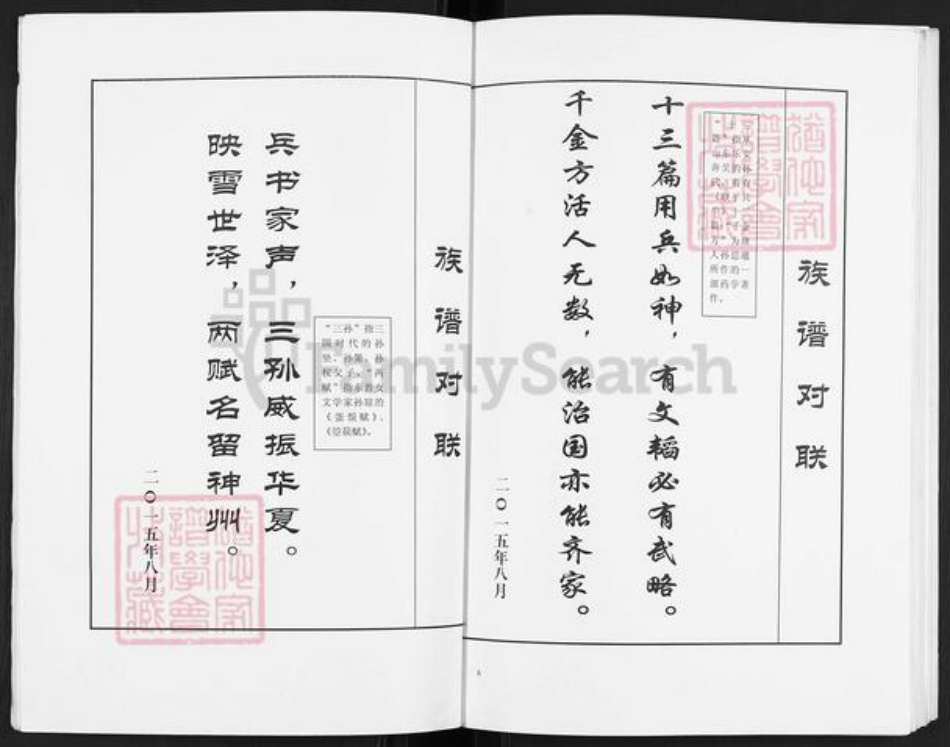 族谱对联
十三篇用兵如神，有文韬必有武略。
千金方活人无数，能治国亦能齐家。
二〇一五年八月
族谱对联
“三孙”指三
国时代的孙
坚、孙策、孙
权父子，“两
赋”指东晋女
文学家孙琼的
《箜篌赋》。
兵书家声，三孙威振华夏。
映雪世泽，两赋名留神州。
二〇一五年八月
FamilySearch